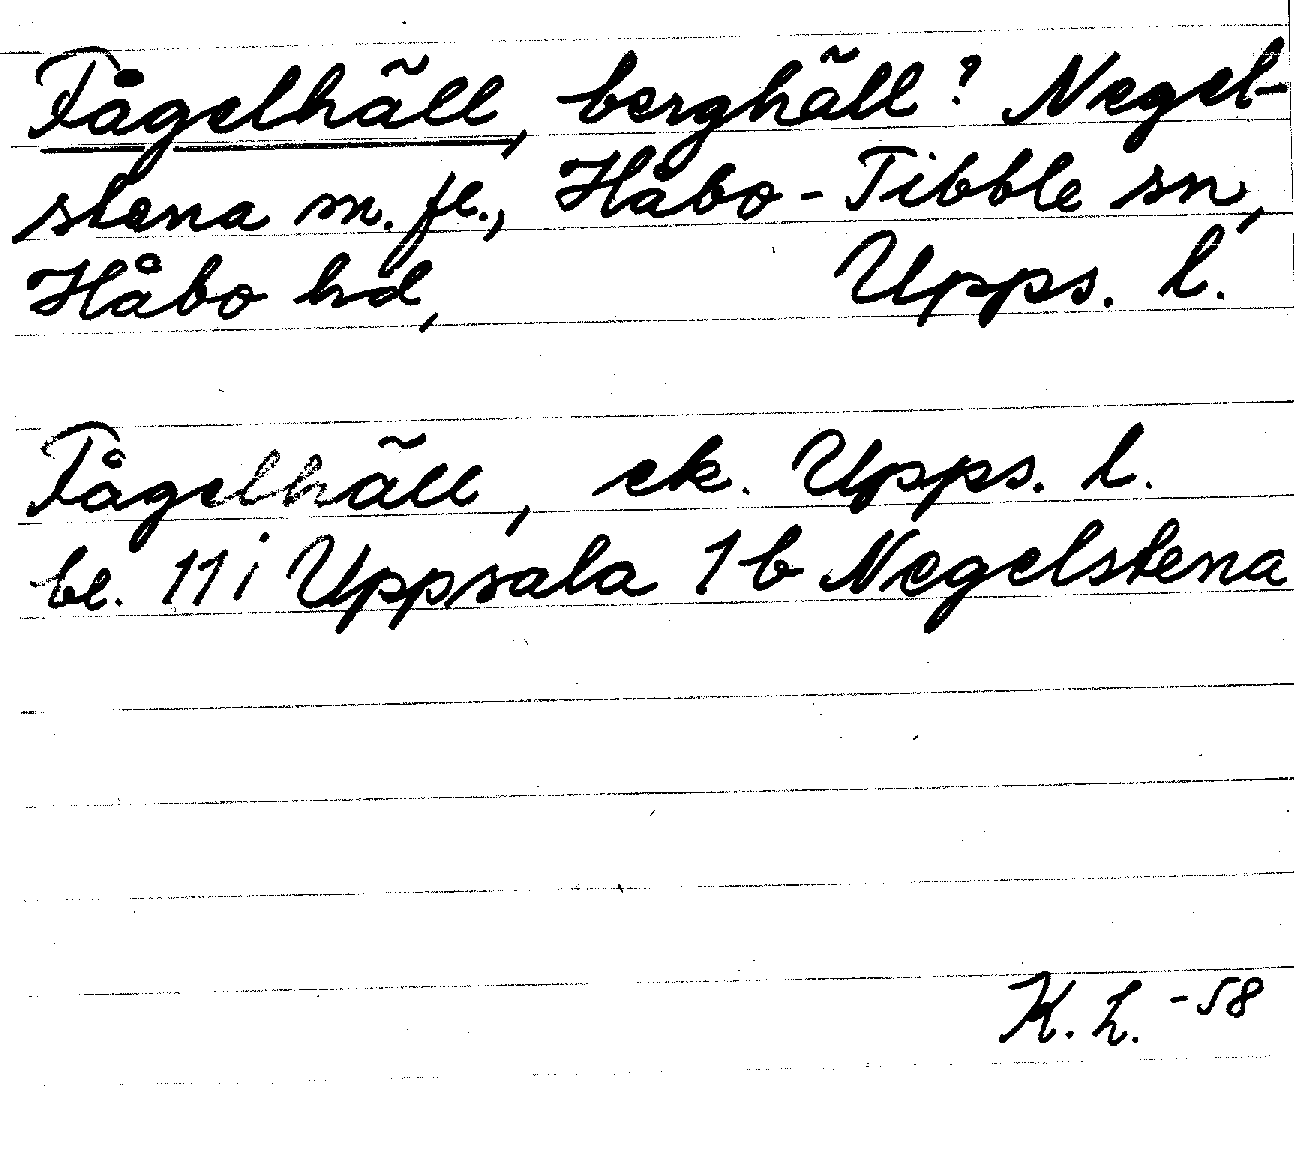 Fågelhäll, berghäll? Negel-
stena m. fl., Håbo-Tibble sn,
Håbo hd, Upps. l.
Fågelhäll, ek. Upps. l.
bl. 11i Uppsala 1b Negelstena
K. L. -58